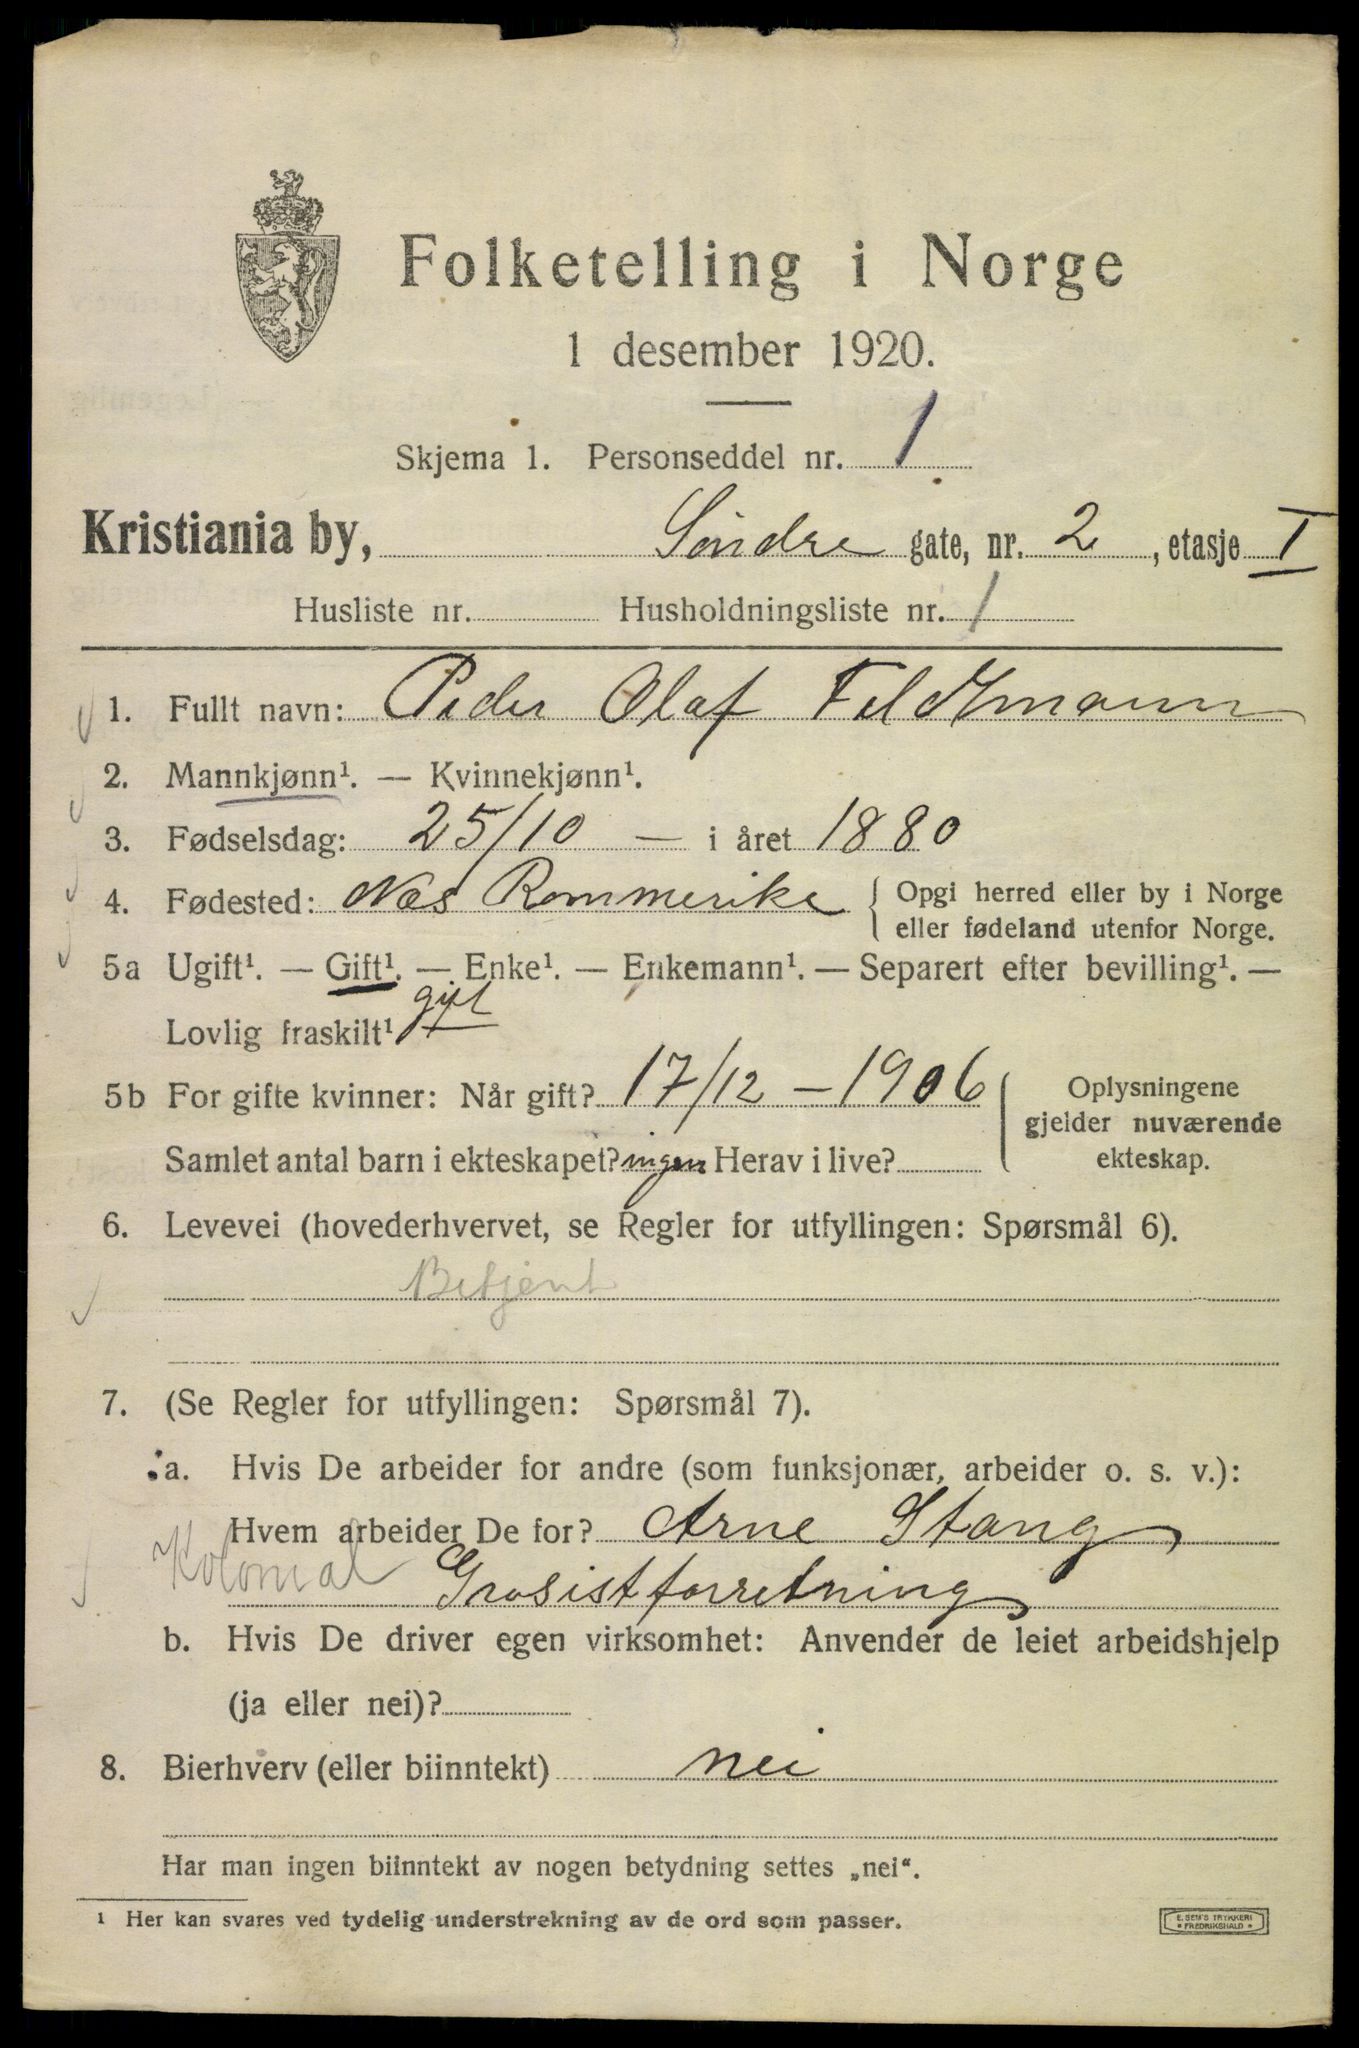 Folketelling i Norge
1 desember 1920.
Skjema 1. Personseddel nr. 1
Kristiania by, Söndre gate, nr. 2, etasje I
Husliste nr. Husholdningsliste nr. 1
1. Fullt navn: Peder Olaf Feldtmann
2. Mannkjønn¹. — Kvinnekjønn¹.
3. Fødselsdag: 25/10 — i året 1880
4. Fødested: Næs Rommerike { Opgi herred eller by i Norge
eller fødeland utenfor Norge.
5a Ugift¹. — Gift¹. — Enke¹. — Enkemann¹. — Separert efter bevilling¹. —
Lovlig fraskilt¹ gift
5b For gifte kvinner: Når gift? 17/12 — 1906
Samlet antal barn i ekteskapet? ingen Herav i live?
Oplysningene
gjelder nuværende
ekteskap.
6. Levevei (hovederhvervet, se Regler for utfyllingen: Spørsmål 6).
Betjent
7. (Se Regler for utfyllingen: Spørsmål 7).
a. Hvis De arbeider for andre (som funksjonær, arbeider o. s. v.):
Hvem arbeider De for? Arne Stang
Kolonial Grosistforretning
b. Hvis De driver egen virksomhet: Anvender de leiet arbeidshjelp
(ja eller nei)?
8. Bierhverv (eller biinntekt) nei
Har man ingen biinntekt av nogen betydning settes „nei“.
¹ Her kan svares ved tydelig understrekning av de ord som passer.
E. SEM'S TRYKKERI
* FREDRIKSHALD *